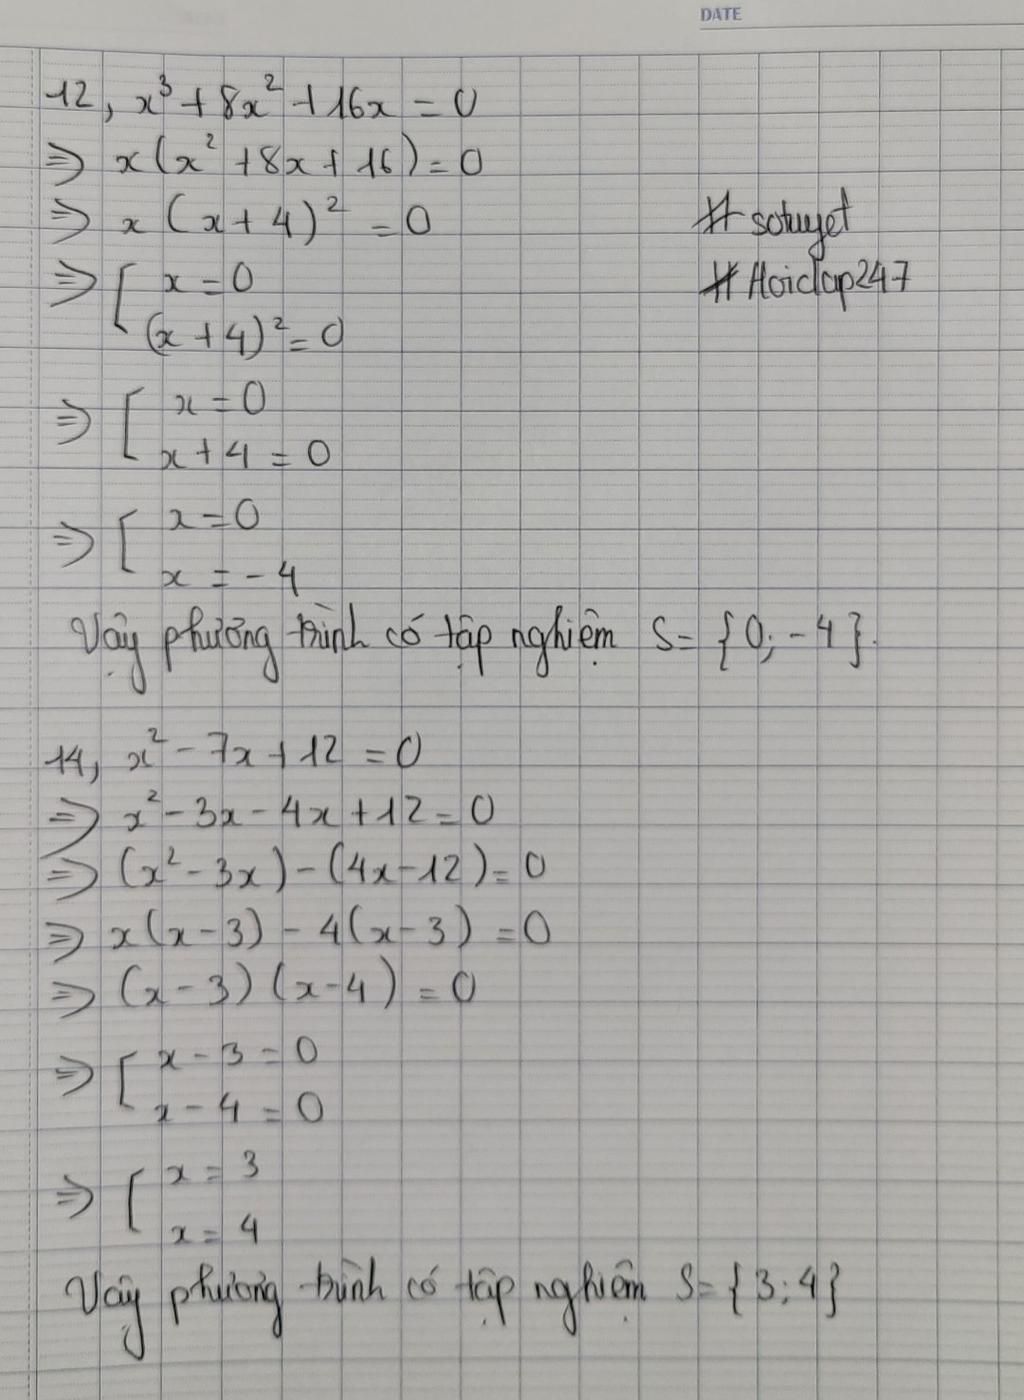 DATE
12, x³ + 8x² + 16x = 0
⇒ x(x² + 8x + 16) = 0
⇒ x (x + 4)² = 0
# sotuyet
⇒ [ x = 0
# Hoidap247
(x + 4)² = 0
⇒ [ x = 0
x + 4 = 0
⇒ [ x = 0
x = -4
Vậy phương trình có tập nghiệm S = {0; -4}.
14, x² - 7x + 12 = 0
⇒ x² - 3x - 4x + 12 = 0
⇒ (x² - 3x) - (4x - 12) = 0
⇒ x(x - 3) - 4(x - 3) = 0
⇒ (x - 3) (x - 4) = 0
⇒ [ x - 3 = 0
x - 4 = 0
⇒ [ x = 3
x = 4
Vậy phương trình có tập nghiệm S = {3; 4}